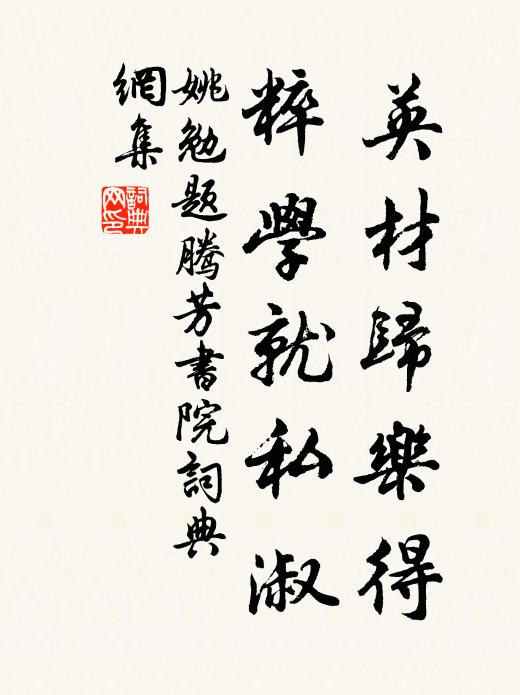 英材歸樂得
粹學就私淑
姚勉題騰芳書院詞典
網集
詞典
网印